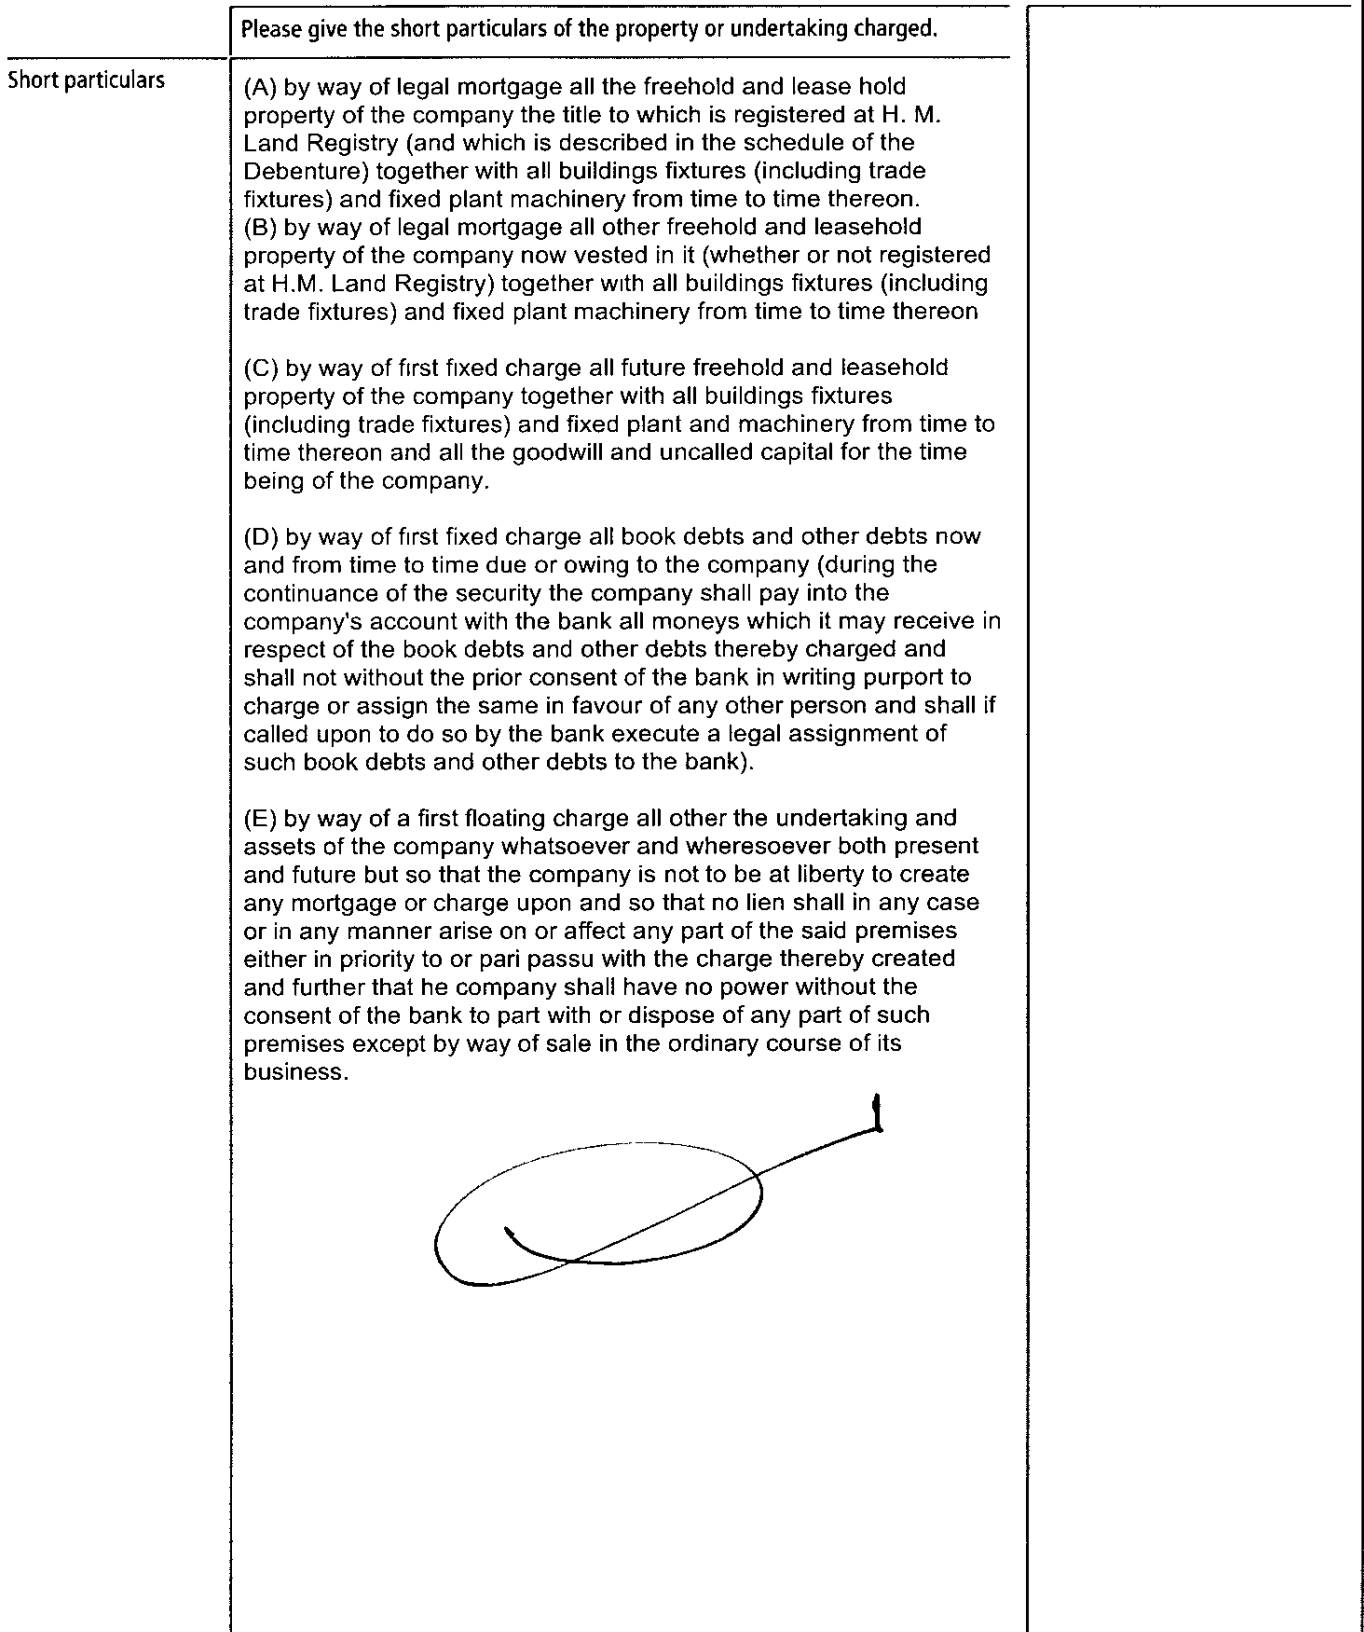 Please give the short particulars of the property or undertaking charged.
Short particulars
(A) by way of legal mortgage all the freehold and lease hold
property of the company the title to which is registered at H. M.
Land Registry (and which is described in the schedule of the
Debenture) together with all buildings fixtures (including trade
fixtures) and fixed plant machinery from time to time thereon.
(B) by way of legal mortgage all other freehold and leasehold
property of the company now vested in it (whether or not registered
at H.M. Land Registry) together with all buildings fixtures (including
trade fixtures) and fixed plant machinery from time to time thereon
(C) by way of first fixed charge all future freehold and leasehold
property of the company together with all buildings fixtures
(including trade fixtures) and fixed plant and machinery from time to
time thereon and all the goodwill and uncalled capital for the time
being of the company.
(D) by way of first fixed charge all book debts and other debts now
and from time to time due or owing to the company (during the
continuance of the security the company shall pay into the
company's account with the bank all moneys which it may receive in
respect of the book debts and other debts thereby charged and
shall not without the prior consent of the bank in writing purport to
charge or assign the same in favour of any other person and shall if
called upon to do so by the bank execute a legal assignment of
such book debts and other debts to the bank).
(E) by way of a first floating charge all other the undertaking and
assets of the company whatsoever and wheresoever both present
and future but so that the company is not to be at liberty to create
any mortgage or charge upon and so that no lien shall in any case
or in any manner arise on or affect any part of the said premises
either in priority to or pari passu with the charge thereby created
and further that he company shall have no power without the
consent of the bank to part with or dispose of any part of such
premises except by way of sale in the ordinary course of its
business.